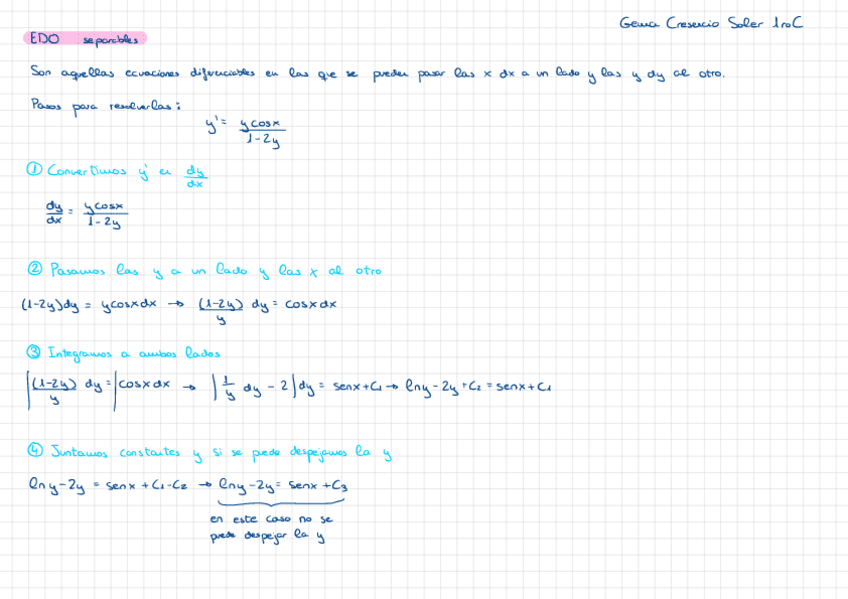 Gema Cresencio Soler 1roC
EDO separables
Son aquellas ecuaciones diferenciables en las que se pueden pasar las x dx a un lado y las y dy al otro.
Pasos para resolverlas:
y' = ycosx / 1-2y
① Convertimos y' en dy/dx
dy/dx = ycosx / 1-2y
② Pasamos las y a un lado y las x al otro
(1-2y)dy = ycosxdx → (1-2y)/y dy = cosxdx
③ Integramos a ambos lados
∫(1-2y)/y dy = ∫cosxdx → ∫1/y dy - 2∫dy = senx+C₁ → lny-2y+C₂ = senx+C₁
④ Juntamos constantes y si se puede despejamos la y
lny-2y = senx+C₁-C₂ → lny-2y = senx+C₃
en este caso no se
puede despejar la y